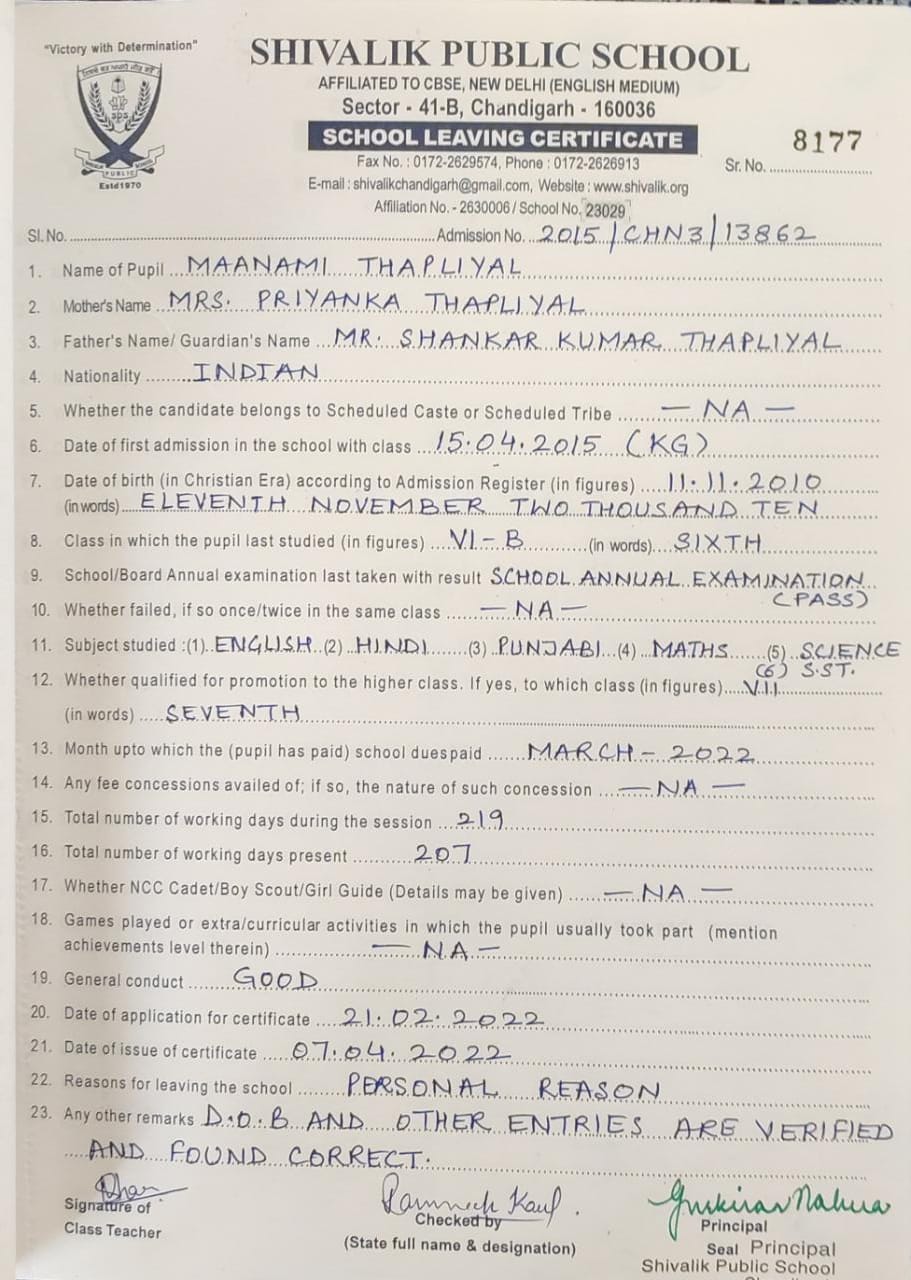 "Victory with Determination"
SHIVALIK PUBLIC SCHOOL
AFFILIATED TO CBSE, NEW DELHI (ENGLISH MEDIUM)
Sector - 41-B, Chandigarh - 160036
SCHOOL LEAVING CERTIFICATE
sps
SHIVALIK PUBLIC SCHOOL
Estd 1970
Fax No. : 0172-2629574, Phone : 0172-2626913
Sr. No. 8177
E-mail : shivalikchandigarh@gmail.com, Website : www.shivalik.org
Affiliation No. - 2630006 / School No. 23029
Sl. No. Admission No. 2015/CHN3/13862
1. Name of Pupil MAANAMI THAPLIYAL
2. Mother's Name MRS. PRIYANKA THAPLIYAL
3. Father's Name/ Guardian's Name MR. SHANKAR KUMAR THAPLIYAL
4. Nationality INDIAN
5. Whether the candidate belongs to Scheduled Caste or Scheduled Tribe — NA —
6. Date of first admission in the school with class 15.04.2015 (KG)
7. Date of birth (in Christian Era) according to Admission Register (in figures) 11.11.2010
(in words) ELEVENTH NOVEMBER TWO THOUSAND TEN
8. Class in which the pupil last studied (in figures) VI-B (in words) SIXTH
9. School/Board Annual examination last taken with result SCHOOL ANNUAL EXAMINATION
(PASS)
10. Whether failed, if so once/twice in the same class — NA —
11. Subject studied :(1) ENGLISH (2) HINDI (3) PUNJABI (4) MATHS (5) SCIENCE
(6) S.ST.
12. Whether qualified for promotion to the higher class. If yes, to which class (in figures) VII
(in words) SEVENTH
13. Month upto which the (pupil has paid) school dues paid MARCH - 2022
14. Any fee concessions availed of; if so, the nature of such concession — NA —
15. Total number of working days during the session 219
16. Total number of working days present 207
17. Whether NCC Cadet/Boy Scout/Girl Guide (Details may be given) — NA —
18. Games played or extra/curricular activities in which the pupil usually took part (mention
achievements level therein) — NA —
19. General conduct GOOD
20. Date of application for certificate 21.02.2022
21. Date of issue of certificate 07.04.2022
22. Reasons for leaving the school PERSONAL REASON
23. Any other remarks D.O.B AND OTHER ENTRIES ARE VERIFIED
AND FOUND CORRECT.
Ramneek Kaul.
Signature of
Class Teacher
Checked by
(State full name & designation)
Principal
Seal Principal
Shivalik Public School